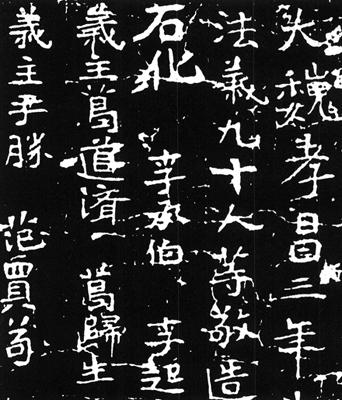 大魏孝昌三年
法義九十人等敬造
石 李承伯 李起
義主葛道濟一 葛歸生
義主尹勝 范賈苟